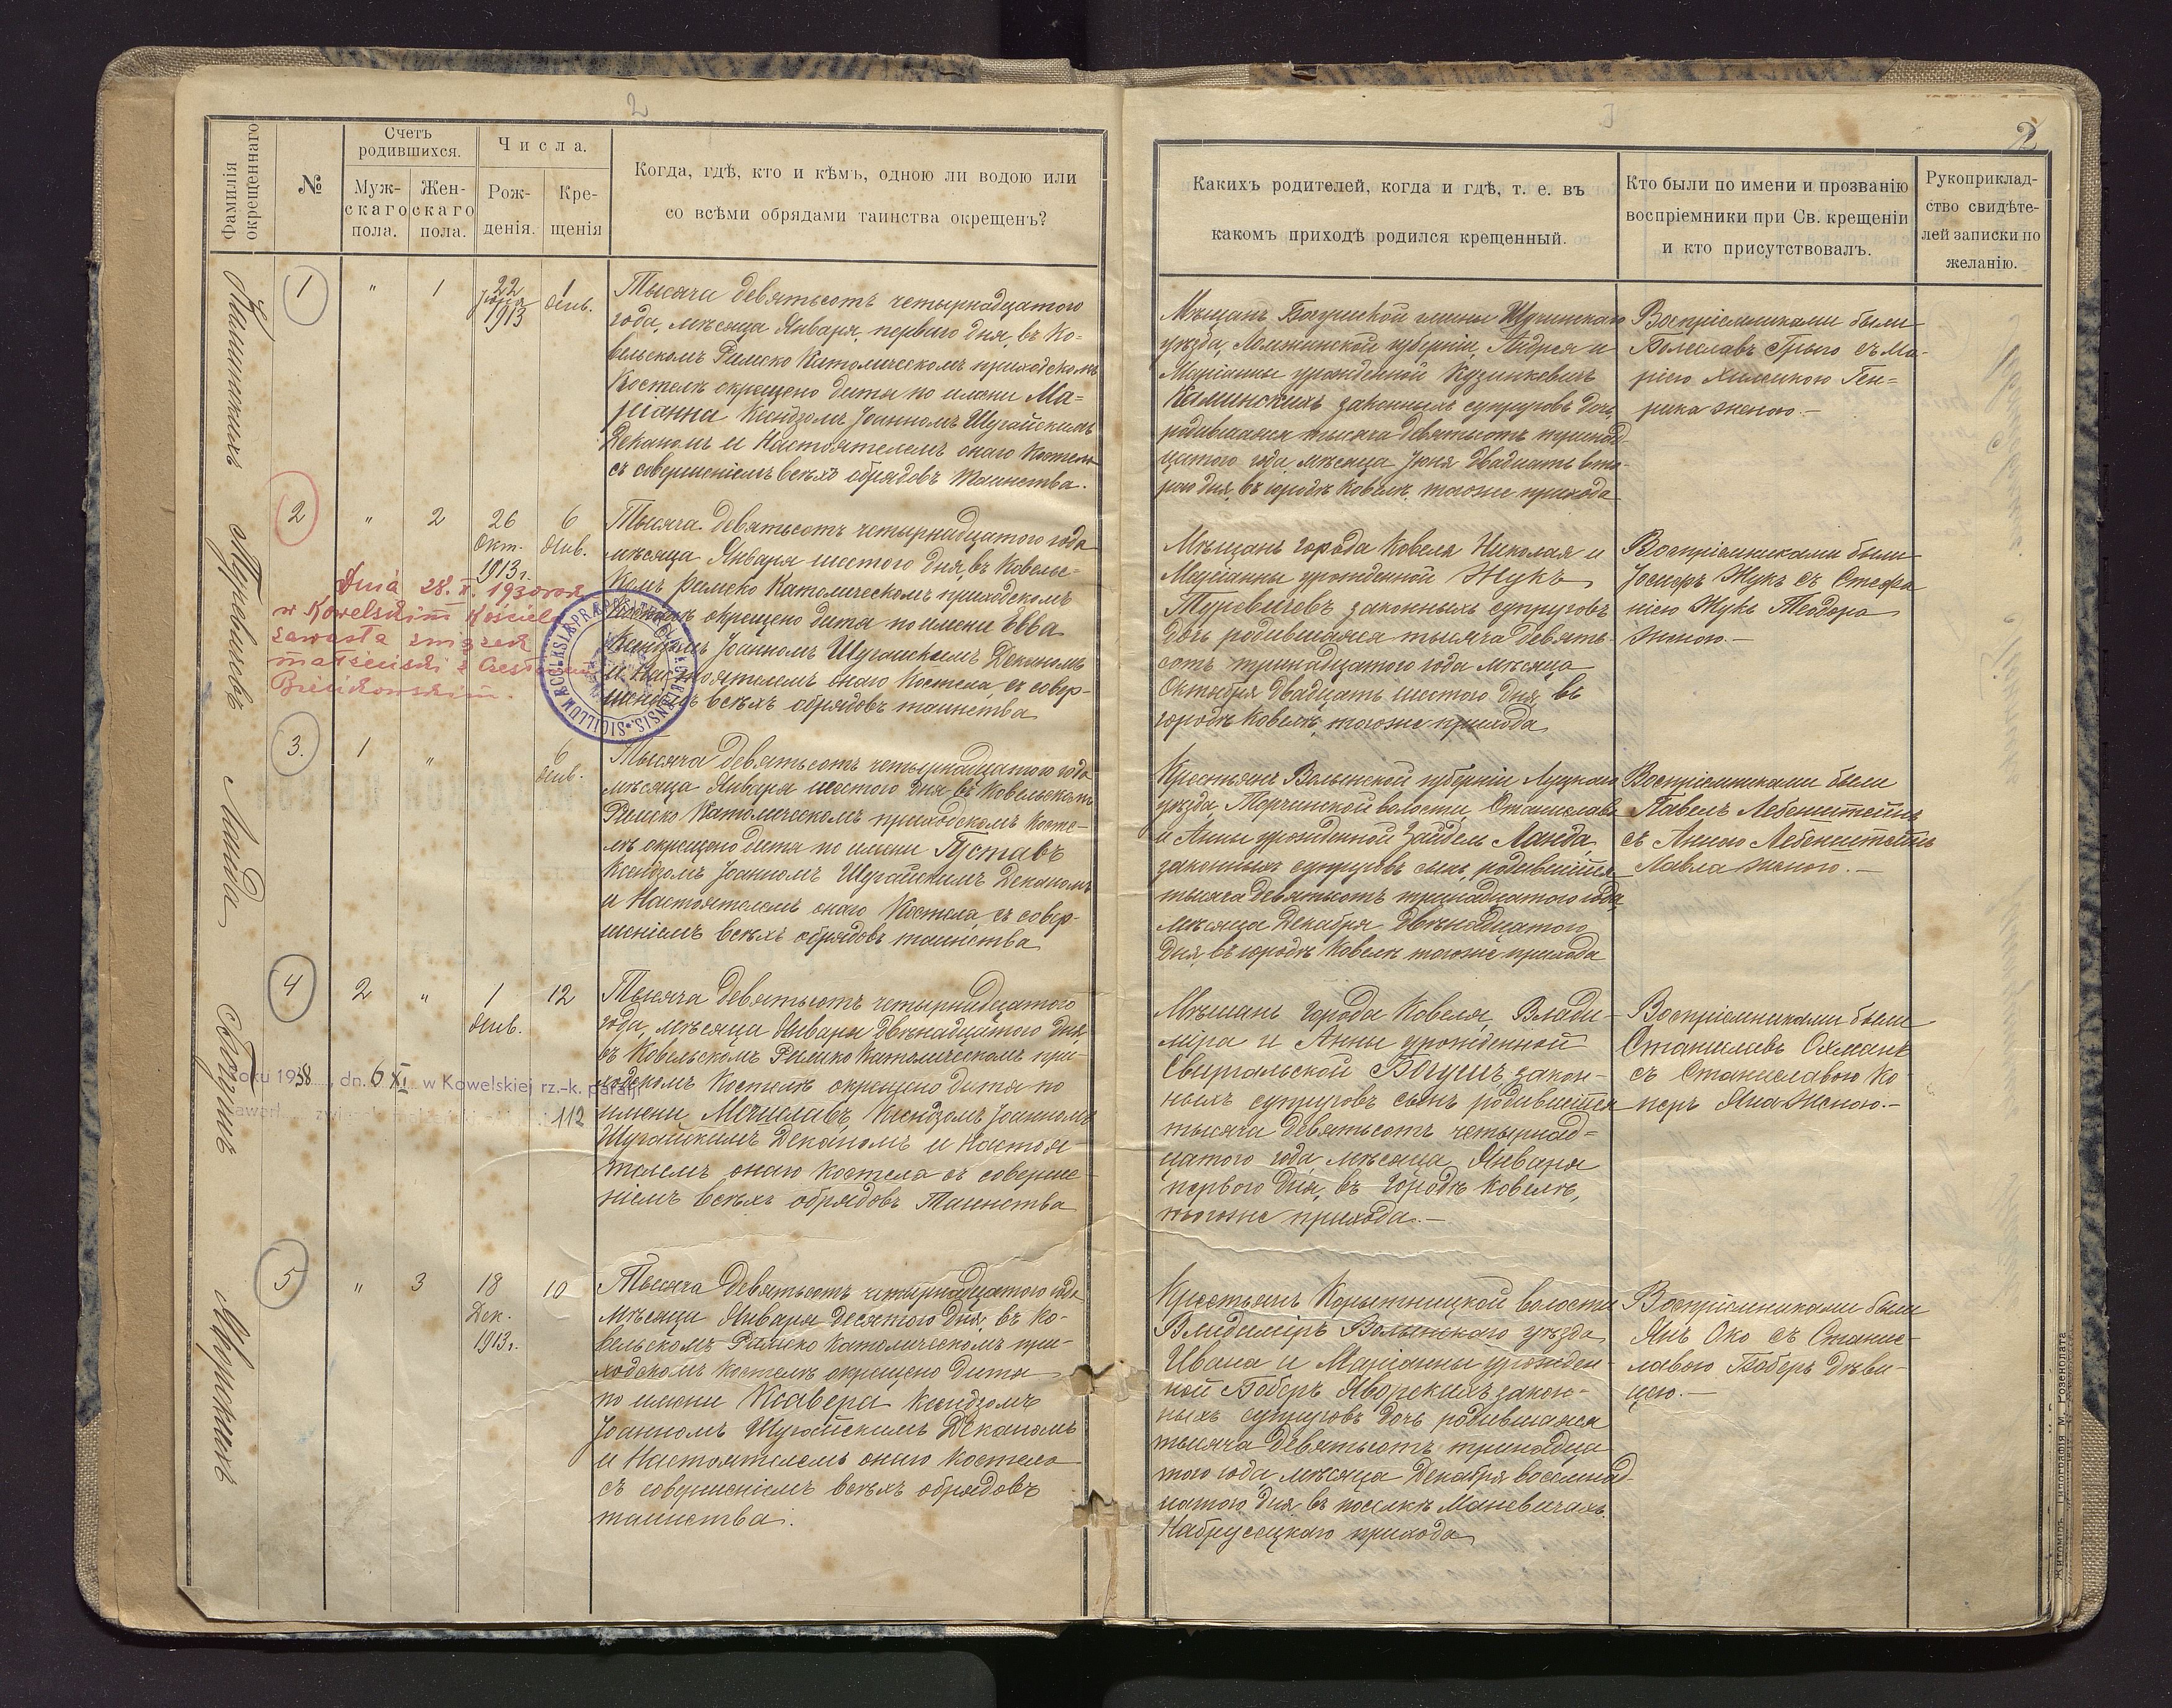 2
Фамилія
окрещеннаго
№
Счетъ
родившихся.
Муж-
скаго
пола.
Жен-
скаго
пола.
Числа.
Рож-
денія.
Кре-
щенія
Когда, гдѣ, кто и кѣмъ, одною ли водою или
со всѣми обрядами таинства окрещенъ?
Каминскихъ
1
"
1
22
Іюня
1913
1
Янв.
Тысяча девятьсотъ четырнадцатого
года, мѣсяца Января, перваго дня, въ Ко-
вельскомъ Римско Католическомъ приходскомъ
Костелѣ окрещено дитя по имени Ма-
ріанна Ксендзомъ Іоанномъ Шугайскимъ
Деканомъ и Настоятелемъ онаго Костела
съ совершеніемъ всѣхъ обрядовъ таинства.
Туревичовъ
2
"
2
26
Окт.
1913 г.
6
Янв.
Тысяча девятьсотъ четырнадцатого года
мѣсяца Января шестого дня, въ Ковельс-
комъ Римско Католическомъ приходскомъ
Костелѣ окрещено дитя по имени Евва
Ксендзомъ Іоанномъ Шугайскимъ Деканомъ
и Настоятелемъ онаго Костела съ совер-
шеніемъ всѣхъ обрядовъ таинства
Dnia 28. X. 1930 rok
w Kowelskim Kościele
zawarła związek
małżeński z
SIGILLUM ECCLESIÆ
Ланда
3.
1
"
6
Янв.
Тысяча девятьсотъ четырнадцатого года
мѣсяца Января шестого дня въ Ковельскомъ
Римско Католическомъ приходскомъ Косте-
лѣ окрещено дитя по имени Густавъ
Ксендзомъ Іоанномъ Шугайскимъ Деканомъ
и Настоятелемъ онаго Костела съ совер-
шеніемъ всѣхъ обрядовъ таинства
Богушъ
4
2
"
1
Янв.
12
Тысяча девятьсотъ четырнадцатого
года, мѣсяца Января двѣнадцатого дня,
въ Ковельскомъ Римско Католическомъ при-
ходскомъ Костелѣ окрещено дитя по
имени Мечиславъ Ксендзомъ Іоанномъ
Шугайскимъ Деканомъ и Настоя-
телемъ онаго Костела съ соверше-
ніемъ всѣхъ обрядовъ Таинства
oku 1938, dn. 6 XI w Kowelskiej rz.-k. parafji
112
5
"
3
18
Дек.
1913 г.
10
Тысяча девятьсотъ четырнадцатого года
мѣсяца Января десятого дня, въ Ко-
вельскомъ Римско Католическомъ при-
ходскомъ Костелѣ окрещено дитя
по имени Ксавера Ксендзомъ
Іоанномъ Шугайскимъ Деканомъ
и Настоятелемъ онаго Костела
съ совершеніемъ всѣхъ обрядовъ
таинства.
3
2
Какихъ родителей, когда и гдѣ, т. е. въ
какомъ приходѣ родился крещенный.
Кто были по имени и прозванію
воспріемники при Св. крещеніи
и кто присутствовалъ.
Рукоприклад-
ство свидѣте-
лей записки по
желанію.
Мѣщанъ Богушской гмины Щучинскаго
уѣзда, Ломжинской губерніи, Андрея и
Маріанны урожденной Кузинкевичъ
Каминскихъ законныхъ супруговъ дочь,
родившаяся тысяча девятьсотъ тринад-
цатого года мѣсяца Іюня двадцать вто-
рого дня, въ городѣ Ковелѣ, тогоже прихода
Воспріемниками были
Болеславъ Грыго съ Ма-
ріею Генрика женою.—
Мѣщанъ города Ковеля Николая и
Маріанны урожденной Жукъ
Туревичовъ законныхъ супруговъ
дочь родившаяся тысяча девять-
сотъ тринадцатого года мѣсяца
Октября двадцать шестого дня, въ
городѣ Ковелѣ, тогоже прихода
Воспріемниками были
Іосифъ Жукъ съ Стефа-
ніею Жукъ Теодора
женою.—
Крестьянъ Волынской губерніи Луцкаго
уѣзда Торчинской волости, Станислава
и Анны урожденной Зайдель Ланда
законныхъ супруговъ сынъ, родившійся
тысяча девятьсотъ тринадцатого года,
мѣсяца Декабря двѣнадцатого
дня, въ городѣ Ковелѣ тогоже прихода
Воспріемниками были
Павелъ Лебенштейнъ
съ Анною Лебенштейнъ
Павла женою.—
Мѣщанъ города Ковеля Влади-
міра и Анны урожденной
Свиргальской Богушъ, закон-
ныхъ супруговъ сынъ родившійся
тысяча девятьсотъ четырнад-
цатого года, мѣсяца Января
перваго дня, въ городѣ Ковелѣ,
тогоже прихода.—
Воспріемниками были
Станиславъ
съ Станиславою Ко-
перъ Яна женою.—
Крестьянъ Корытницкой волости
Владиміръ Волынскаго уѣзда
Ивана и Маріанны урожден-
ной Боберъ Яворскихъ закон-
ныхъ супруговъ дочь родившаяся
тысяча девятьсотъ тринадца-
того года, мѣсяца Декабря восемнад-
цатого дня въ поселкѣ Маневичахъ,
прихода
Воспріемниками были
Янъ Око съ Станис-
лавою Боберъ дѣви-
цею.—
Житомиръ. Типографія М. Розенблата